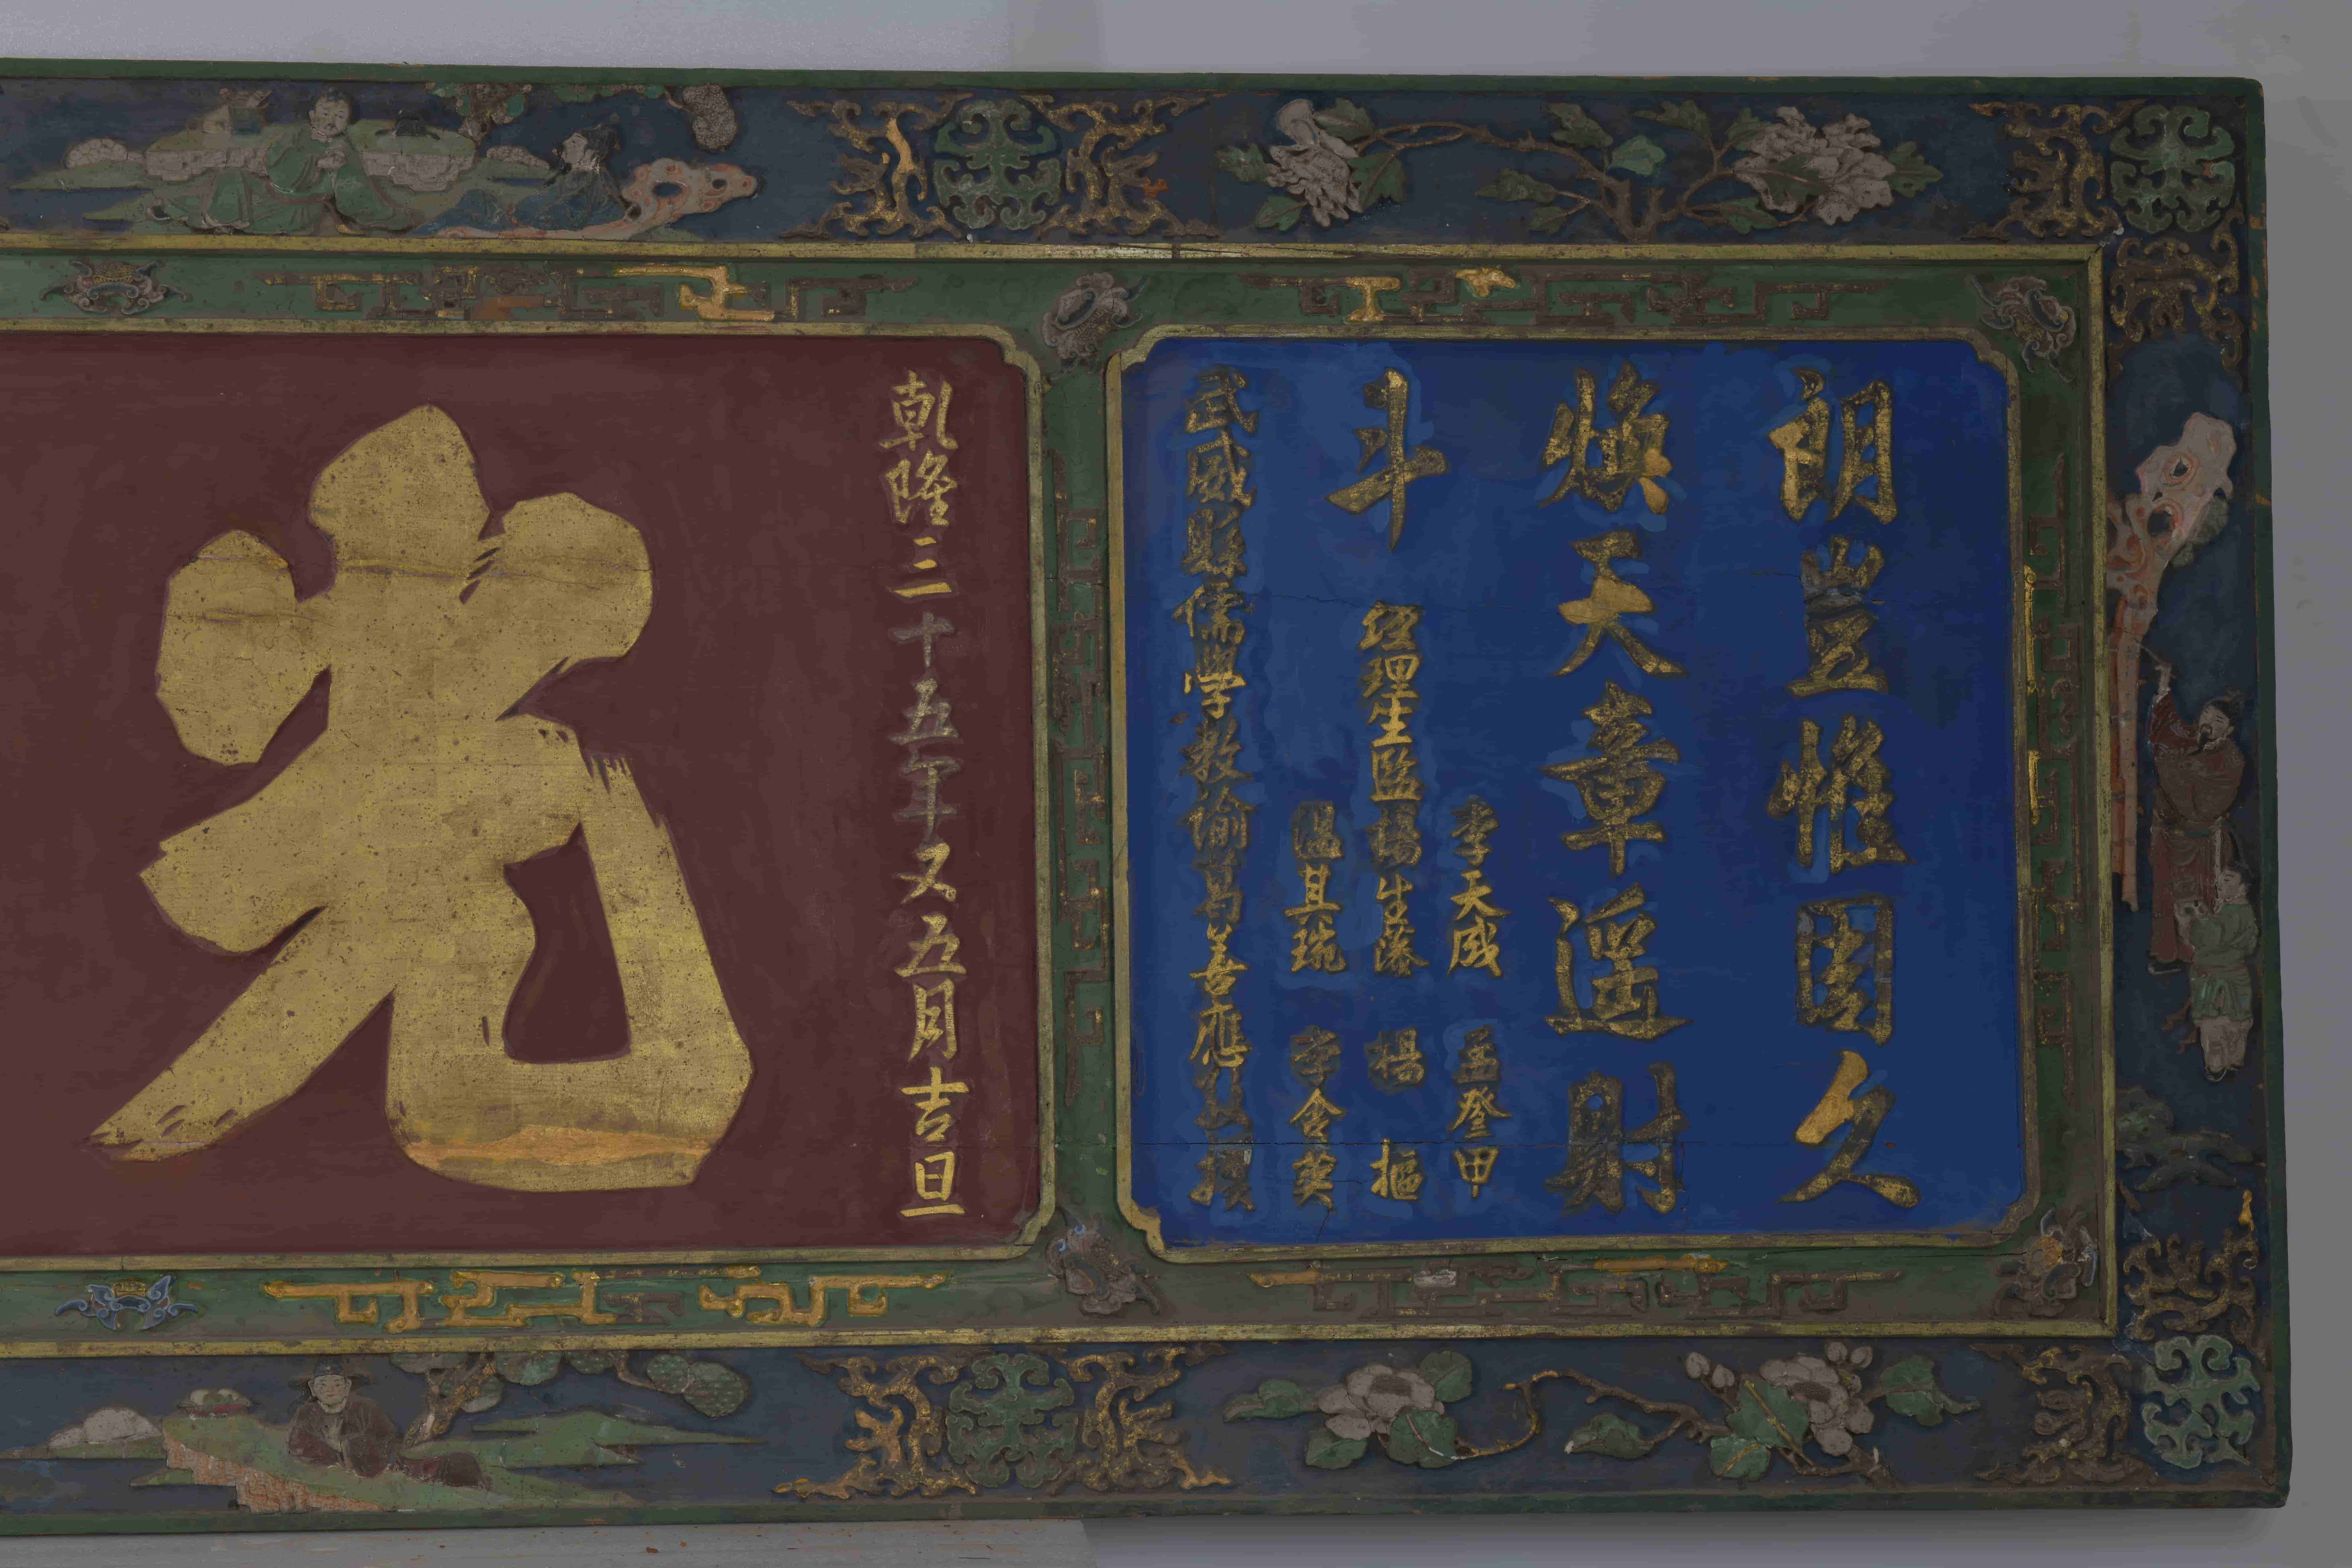 朗豈惟固久
煥天章遥射
斗
李天威 孟登甲
経理生監楊生蓁 楊樞
溫其琬 李含英
武威縣儒學教諭葛善應敬撰
乾隆二十五年又五月吉旦
光